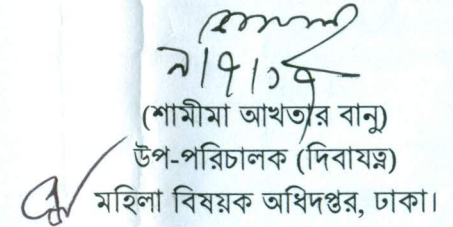 (শামীমা আখতার বানু)
উপ-পরিচালক (দিবাযত্ন)
মহিলা বিষয়ক অধিদপ্তর, ঢাকা।